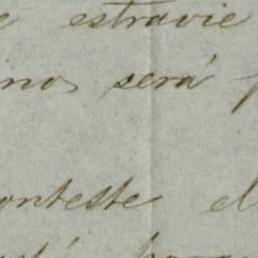 e estravie
inos será p
onteste el